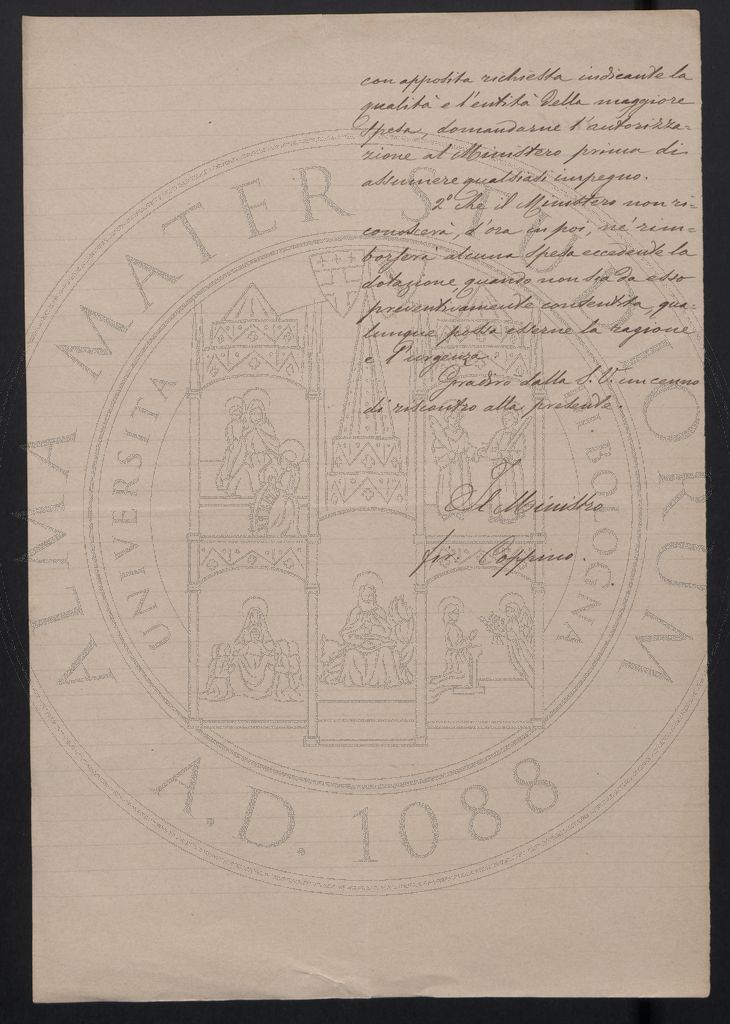 con apposita richiesta indicante la
qualità e l'entità della maggiore
spesa, domandarne l'autorizza-
zione al Ministero prima di
assumere qualsiasi impegno.
2° Che il Ministero non ri-
conoscerà, d'ora in poi, né rim-
borserà alcuna spesa eccedente la
dotazione quando non sia da esso
preventivamente consentita, qua-
lunque possa esserne la ragione
e l'urgenza.
Gradirò dalla S. V. un cenno
di riscontro alla presente.
Il Ministro
fir: Coppino.
ALMA MATER STUDIORUM
UNIVERSITA DI BOLOGNA
A.D. 1088